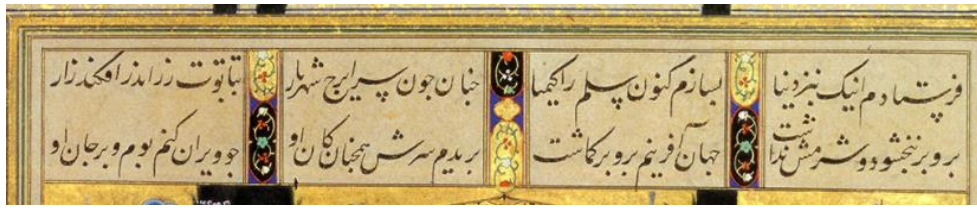 فرستادم اینک بنزد نیا بسازم کنون سلم را کیمیا چنان چون سر ایرج شهریار بتابوت زر اندر افکند زار
برو بر نبخشود و شرمش نداشت جهان آفرینم برو بر کماشت بریدم سرش همچنان کان او چو ویران کنم بوم و بر خان او